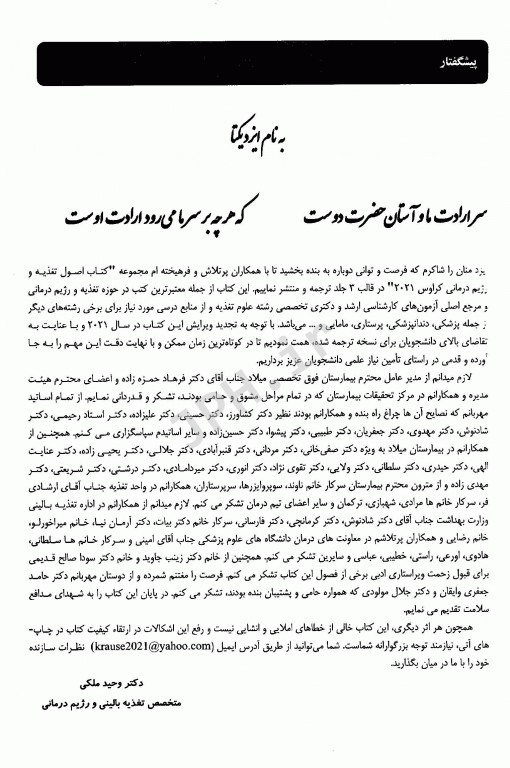 پیشگفتار
به نام ایزد یکتا
سر ارادت ما و آستان حضرت دوست که هر چه بر سر ما می رود ارادت اوست
یزد منان را شاکرم که فرصت و توانی دوباره به بنده بخشید تا با همکاران پرتلاش و فرهیخته ام مجموعه "کتاب اصول تغذیه و
رژیم درمانی کراوس ۲۰۲۱" در قالب ۳ جلد ترجمه و منتشر نماییم. این کتاب از جمله معتبرترین کتب در حوزه تغذیه و رژیم درمانی
و مرجع اصلی آزمون‌های کارشناسی ارشد و دکتری تخصصی رشته علوم تغذیه و از منابع درسی مورد نیاز برای برخی رشته‌های دیگر
ز جمله پزشکی، دندانپزشکی، پرستاری، مامایی و ... می‌باشد. با توجه به تجدید ویرایش این کتاب در سال ۲۰۲۱ و با عنایت به
تقاضای بالای دانشجویان برای نسخه ترجمه شده، همت نمودیم تا در کوتاه‌ترین زمان ممکن و با نهایت دقت این مهم را به جا
آورده و قدمی در راستای تأمین نیاز علمی دانشجویان عزیز برداریم.
لازم میدانم از مدیر عامل محترم بیمارستان فوق تخصصی میلاد جناب آقای دکتر فرهاد حمزه زاده و اعضای محترم هیئت
مدیره و همکارانم در مرکز تحقیقات بیمارستان که در تمام مراحل مشوق و حامی بودند، تشکر و قدردانی نمایم. از تمام اساتید
مهربانم که نصایح آن ها چراغ راه بنده و همکارانم بودند نظیر دکتر کشاورز، دکتر حسینی، دکتر علیزاده، دکتر استاد رحیمی، دکتر
شادنوش، دکتر مهدوی، دکتر جعفریان، دکتر طبیبی، دکتر پیشوا، دکتر حسین‌زاده و سایر اساتیدم سپاسگزاری می کنم. همچنین از
همکارانم در بیمارستان میلاد به ویژه دکتر صفی‌خانی، دکتر مردانی، دکتر قنبرآبادی، دکتر جلالی، دکتر یحیی زاده، دکتر عنایت
الهی، دکتر حیدری، دکتر سلطانی، دکتر ولایی، دکتر تقوی نژاد، دکتر انوری، دکتر میردامادی، دکتر درشتی، دکتر شریعتی، دکتر
مهدی زاده و از مترون محترم بیمارستان سرکار خانم ناوند، سوپروایزرها، سرپرستاران، همکارانم در واحد تغذیه جناب آقای ارشادی
فر، سرکار خانم ها مرادی، شهبازی، ترکمان و سایر اعضای تیم درمان تشکر می کنم. لازم میدانم از همکارانم در اداره تغذیه بالینی
وزارت بهداشت جناب آقای دکتر شادنوش، دکتر کرمانجی، دکتر فارسانی، سرکار خانم دکتر بیات، دکتر آرمان نیا، خانم میراخورلو،
خانم رضایی و همکاران پرتلاشم در معاونت های درمان دانشگاه های علوم پزشکی جناب آقای امینی و سرکار خانم ها سلطانی،
هادوی، اورعی، راستی، خطیبی، عباسی و سایرین تشکر می کنم. همچنین از خانم دکتر زینب جاوید و خانم دکتر سودا صالح قدیمی
برای قبول زحمت ویراستاری ادبی برخی از فصول این کتاب تشکر می کنم. فرصت را مغتنم شمرده و از دوستان مهربانم دکتر حامد
جعفری وایقان و دکتر جلال مولودی که همواره حامی و پشتیبان بنده بودند، تشکر می کنم. در پایان این کتاب را به شهدای مدافع
سلامت تقدیم می نمایم.
همچون هر اثر دیگری، این کتاب خالی از خطاهای املایی و انشایی نیست و رفع این اشکالات در ارتقاء کیفیت کتاب در چاپ-
های آتی، نیازمند توجه بزرگوارانه شماست. شما می‌توانید از طریق آدرس ایمیل (krause2021@yahoo.com) نظرات سازنده
خود را با ما در میان بگذارید.
دکتر وحید ملکی
متخصص تغذیه بالینی و رژیم درمانی